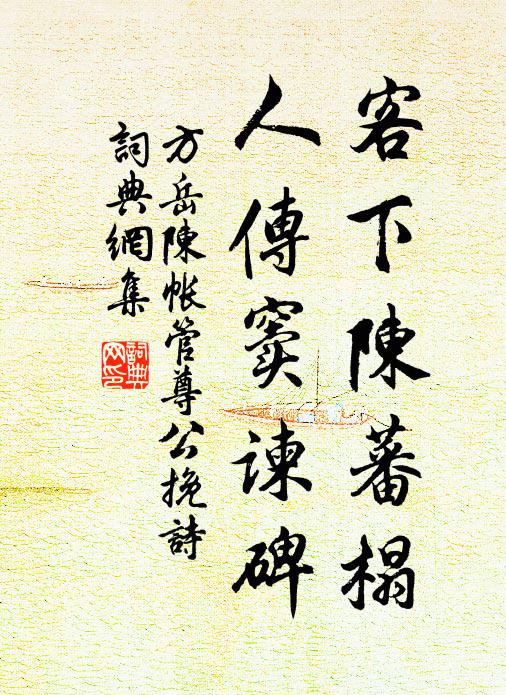 客下陳蕃榻
人傳竇諫碑
方岳陳帐管尊公挽詩
詞典網集
詞典
网印